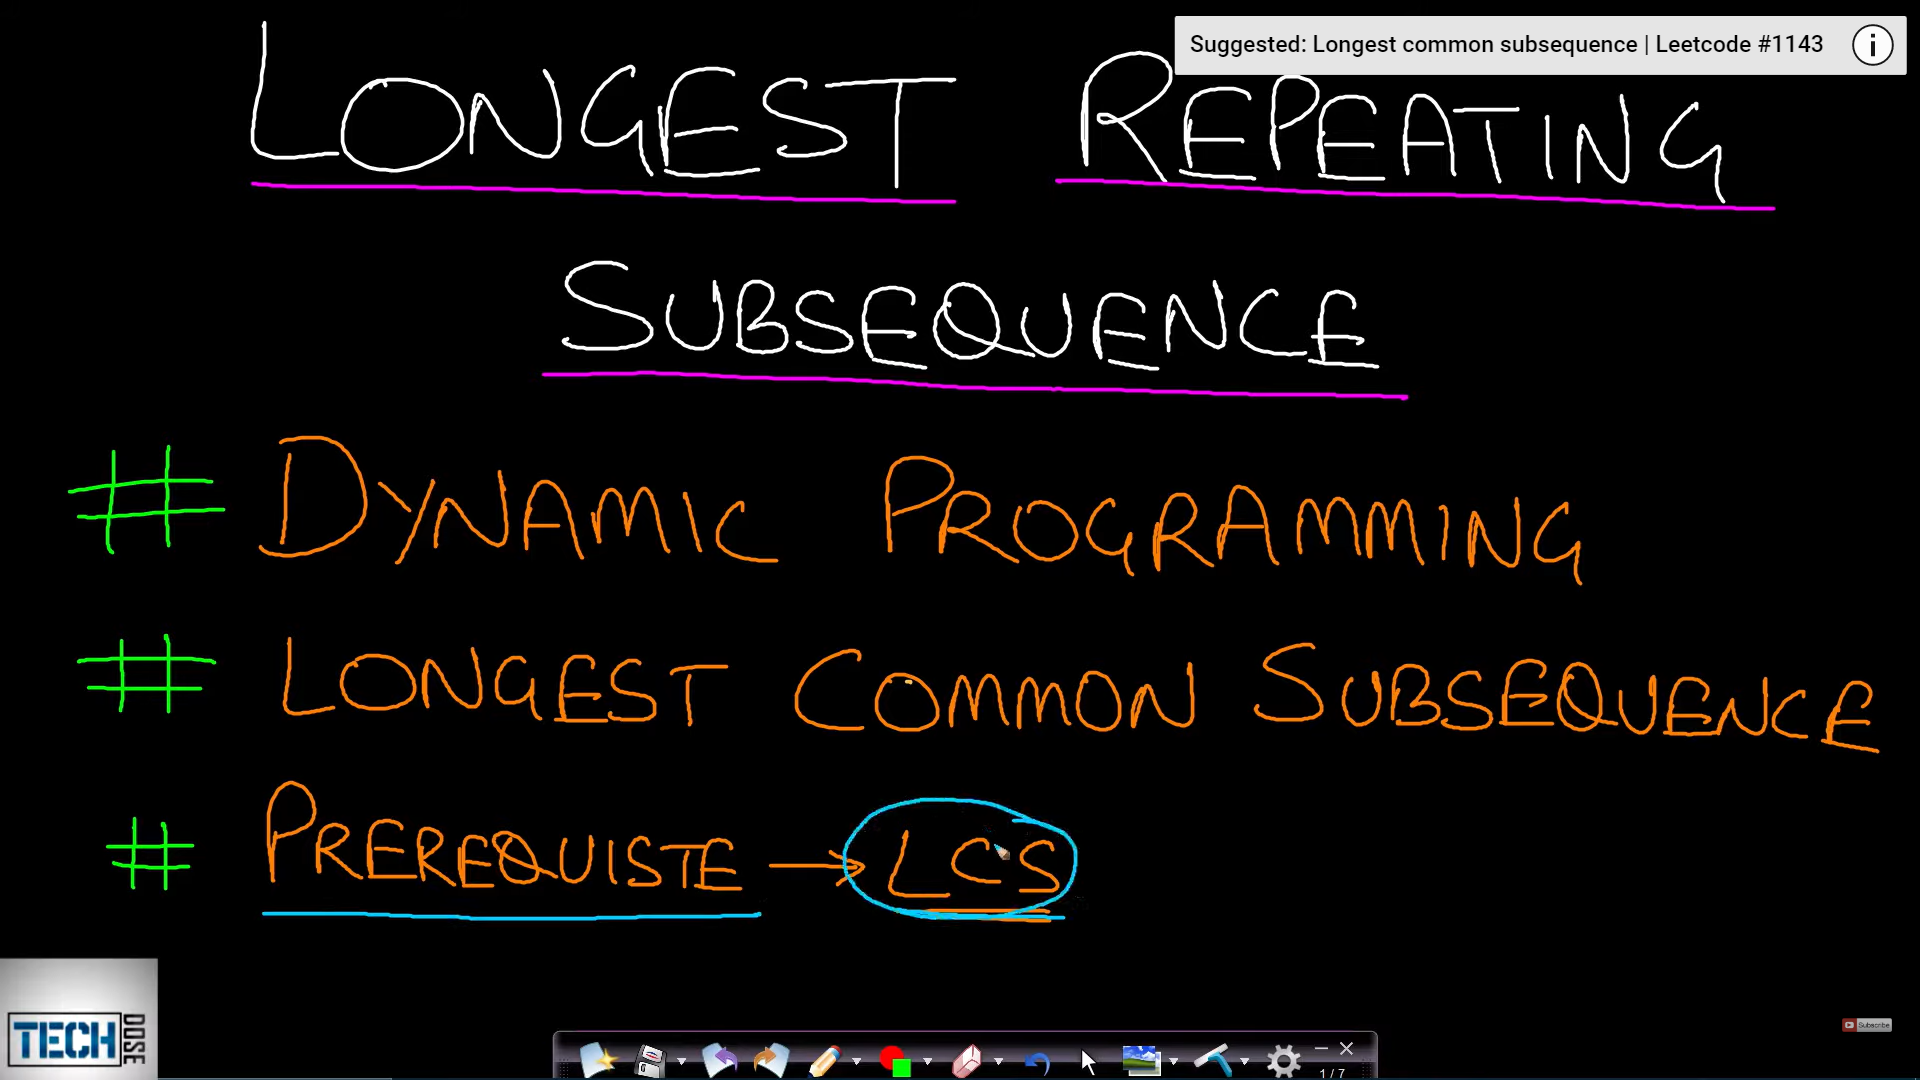 Suggested: Longest common subsequence | Leetcode #1143
LONGEST REPEATING
SUBSEQUENCE
# DYNAMIC PROGRAMMING
# LONGEST COMMON SUBSEQUENCE
# PREREQUISTE → LCS
TECH DOSE
Subscribe
1 / 7